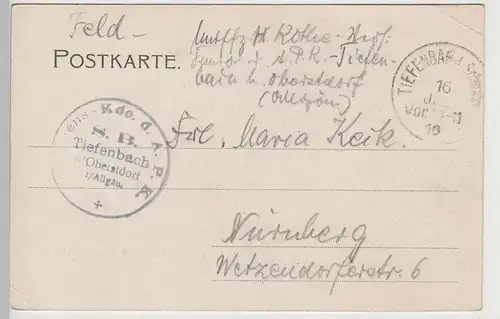 Feld-
POSTKARTE.
Rothe
A.P.K. - Tiefen-
bach b. Oberstdorf
(Allgäu)
TIEFENBACH
16
VORM
16
Kdo. d. A. P. K.
S. B.
Tiefenbach
b/Oberstdorf
i/Allgäu
Frl. Maria Keik.
Nürnberg
Wetzendorferstr. 6